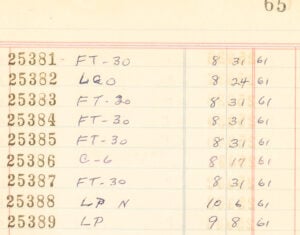 65
25381 FT-30 8 31 61
25382 LGO 8 24 61
25383 FT-30 8 31 61
25384 FT-30 8 31 61
25385 FT-30 8 31 61
25386 C-6 8 17 61
25387 FT-30 8 31 61
25388 LP N 10 6 61
25389 LP 9 8 61